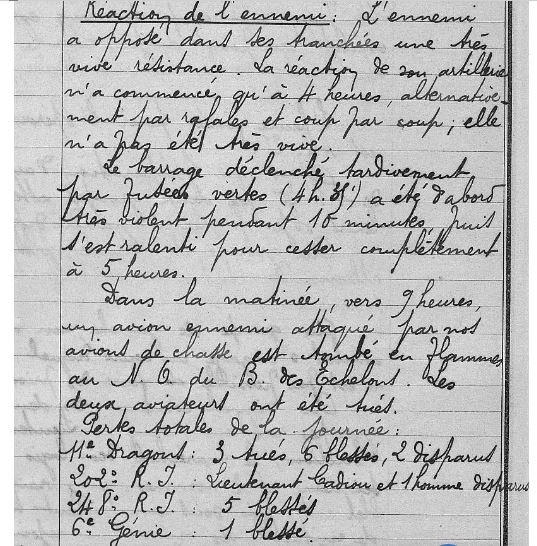 Réaction de l'ennemi : L'ennemi
a opposé dans ses tranchées une très
vive résistance. La réaction de son artillerie
n'a commencé qu'à 4 heures, alternative-
ment par rafales et coup par coup ; elle
n'a pas été très vive.
Le barrage déclenché tardivement
par fusées vertes (4h.35') a été d'abord
très violent pendant 10 minutes, puis
s'est ralenti pour cesser complètement
à 5 heures.
Dans la matinée, vers 9 heures,
un avion ennemi attaqué par nos
avions de chasse est tombé en flammes
au N.O. du B. des Échelons. Les
deux aviateurs ont été tués.
Pertes totales de la journée :
11e Dragons : 3 tués, 6 blessés, 2 disparus
202e R.I. : Lieutenant Cadiou et 1 homme disparus
248e R.I. : 5 blessés
6e Génie : 1 blessé.